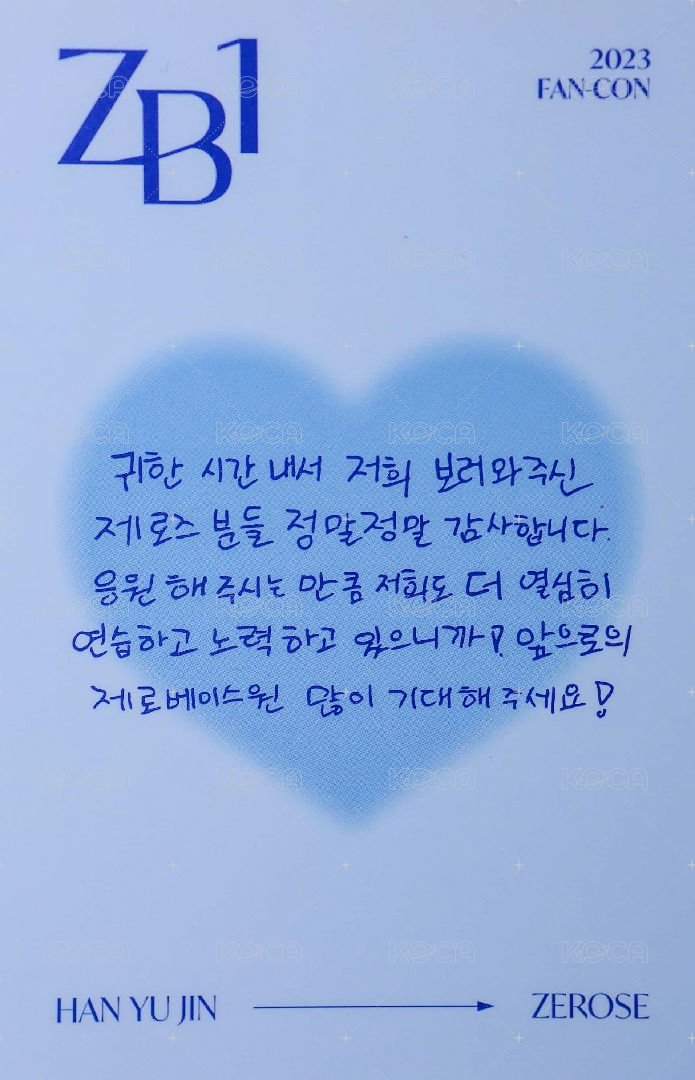 ZB1
2023
FAN-CON
귀한 시간 내서 저희 보러와주신
제로즈 분들 정말정말 감사합니다.
응원 해 주시는 만큼 저희도 더 열심히
연습하고 노력 하고 있으니까! 앞으로의
제로베이스원 많이 기대해주세요!
HAN YU JIN
ZEROSE
KOCA